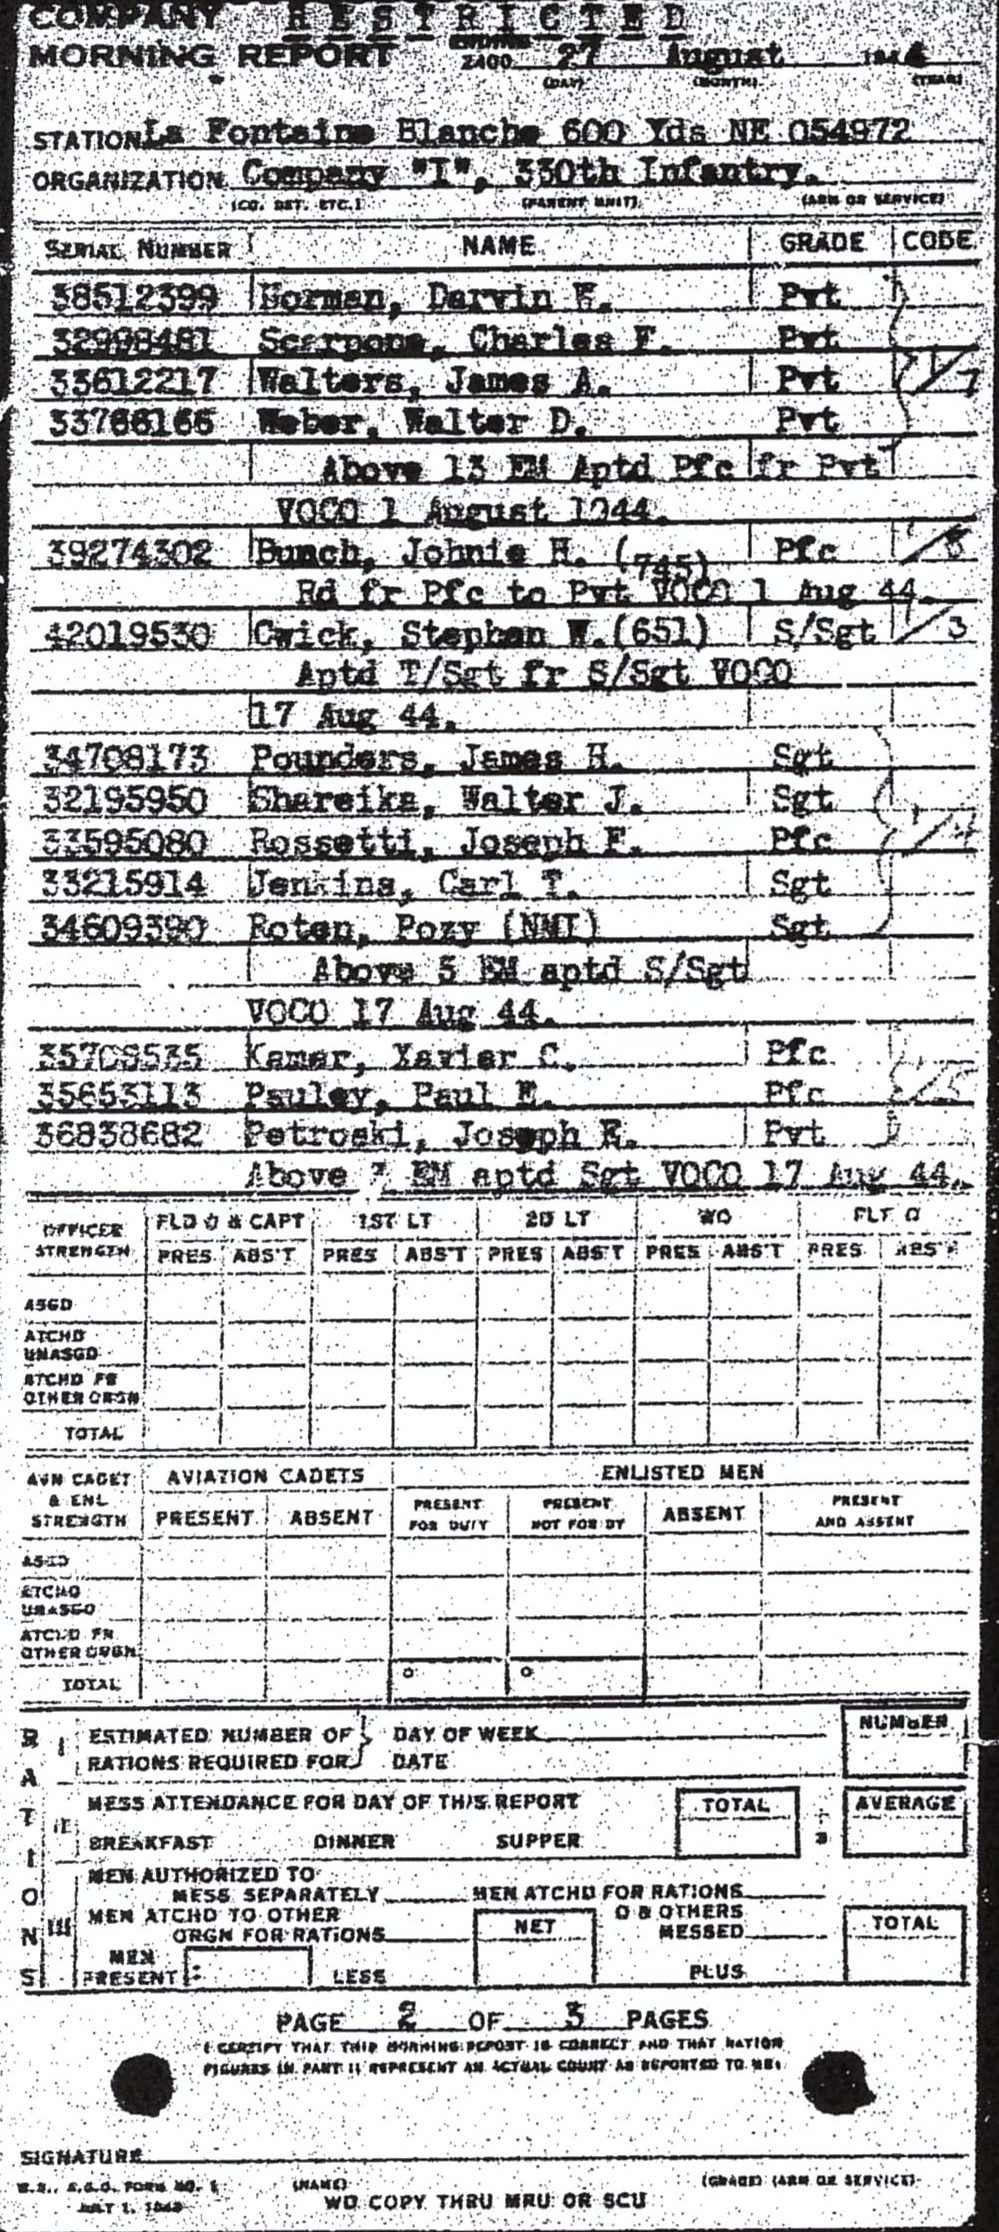 COMPANY RESTRICTED
MORNING REPORT ENDING 2400 27 August 1944
(DAY) (MONTH) (YEAR)
STATION La Fontaine Blanche 600 Yds NE 054972
ORGANIZATION Company "I", 330th Infantry.
(CO. DET. ETC.) (PARENT UNIT) (ARM OR SERVICE)
SERIAL NUMBER NAME GRADE CODE
38512399 Darvin Pvt
32998481 Scarpone, Charles F. Pvt
33612217 Walters, James A. Pvt 1/7
33766166 Weber, Walter D. Pvt
Above 13 EM Aptd Pfc fr Pvt
VOCO 1 August 1944.
39274302 Bunch, Johnie H. (745) Pfc
Rd fr Pfc to Pvt VOCO 1 Aug 44.
42019530 Cwick, Stephen W.(651) S/Sgt 1/3
Aptd T/Sgt fr S/Sgt VOCO
17 Aug 44.
34708173 Pounders, James H. Sgt
32195950 Shareika, Walter J. Sgt
33595080 Rossetti, Joseph F. Pfc 1/4
33215914 Jenkins, Carl T. Sgt
34609390 Roten, Pozy (NMI) Sgt
Above 5 EM aptd S/Sgt
VOCO 17 Aug 44.
35709535 Kamer, Xavier C. Pfc
35653113 Pauley, Paul E. Pfc 1/5
36838682 Petroski, Joseph R. Pvt
Above 3 EM aptd Sgt VOCO 17 Aug 44.
OFFICER STRENGTH FLD O & CAPT 1ST LT 2D LT WO FLT O
PRES ABS'T PRES ABS'T PRES ABS'T PRES ABS'T PRES ABS'T
ASGD
ATCHD UNASGD
ATCHD FR OTHER ORGN
TOTAL
AVN CADET & ENL STRENGTH AVIATION CADETS ENLISTED MEN
PRESENT ABSENT PRESENT FOR DUTY PRESENT NOT FOR DY ABSENT PRESENT AND ABSENT
ASGD
ATCHD UNASGD
ATCHD FR OTHER ORGN
TOTAL
RATIONS
I ESTIMATED NUMBER OF } DAY OF WEEK NUMBER
RATIONS REQUIRED FOR } DATE
II MESS ATTENDANCE FOR DAY OF THIS REPORT TOTAL AVERAGE
BREAKFAST DINNER SUPPER ÷ 3
III MEN AUTHORIZED TO
MESS SEPARATELY MEN ATCHD FOR RATIONS
MEN ATCHD TO OTHER NET O & OTHERS TOTAL
ORGN FOR RATIONS MESSED
MEN
PRESENT LESS PLUS
PAGE 2 OF 3 PAGES
I CERTIFY THAT THIS MORNING REPORT IS CORRECT AND THAT RATION
FIGURES IN PART II REPRESENT AN ACTUAL COUNT AS REPORTED TO ME.
SIGNATURE
W.D., A.G.O. FORM NO. 1 (NAME) (GRADE) (ARM OR SERVICE)
JULY 1, 1943 WD COPY THRU MRU OR SCU